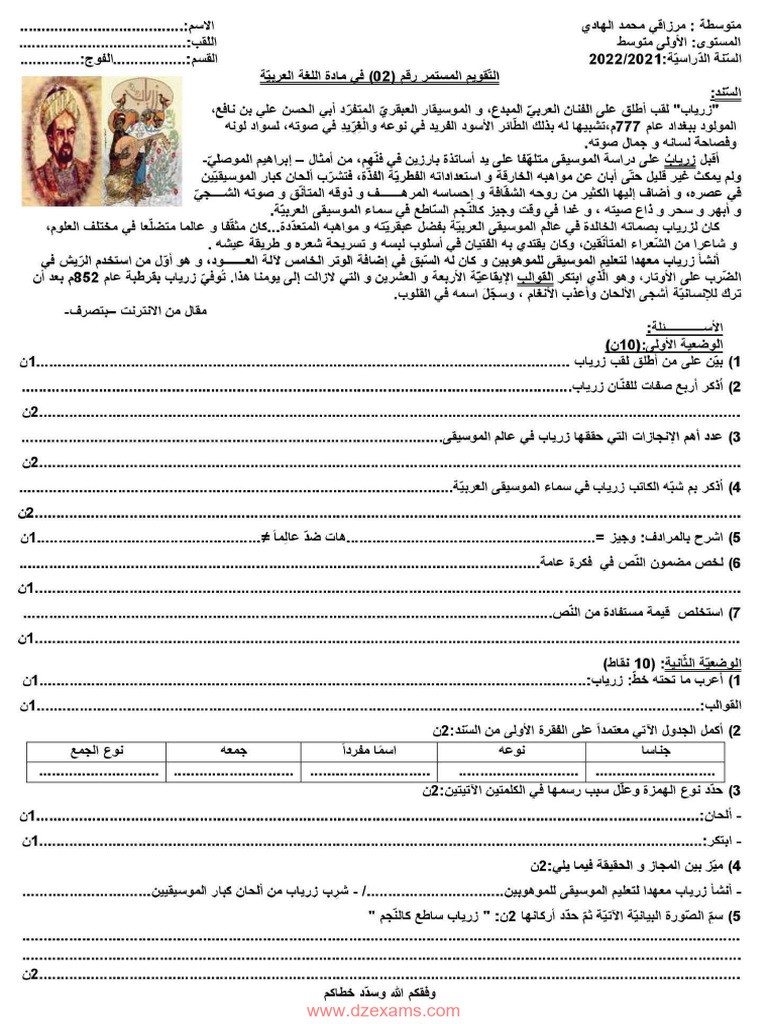 متوسطة : مرزاقي محمد الهادي
الاسم:.......................................
المستوى: الأولى متوسط
اللقب:........................................
السنة الدّراسيّة:2022/2021
القسم:.................الفوج:..............
التّقويم المستمر رقم (02) في مادة اللغة العربيّة
السّند:
زرياب
"زرياب" لقب أطلق على الفنان العربيّ المبدع، و الموسيقار العبقريّ المتفرّد أبي الحسن علي بن نافع،
المولود ببغداد عام 777م،تشبيها له بذلك الطّائر الأسود الفريد في نوعه والْغِرِّيد في صوته، لسواد لونه
وفصاحة لسانه و جمال صوته.
أقبل زريابُ على دراسة الموسيقى متلهّفا على يد أساتذة بارزين في فنّهم، من أمثال – إبراهيم الموصليّ-
ولم يمكث غير قليل حتّى أبان عن مواهبه الخارقة و استعداداته الفطريّة الفذّة، فتشرّب ألحان كبار الموسيقيّين
في عصره، و أضاف إليها الكثير من روحه الشفّافة و إحساسه المرهــــف و ذوقه المتأنّق و صوته الشـــجيّ
و أبهر و سحر و ذاع صيته ، و غدا في وقت وجيز كالنّجم السّاطع في سماء الموسيقى العربيّة.
كان لزرياب بصماته الخالدة في عالم الموسيقى العربيّة بفضل عبقريّته و مواهبه المتعدّدة...كان مثقّفا و عالما متضلّعا في مختلف العلوم،
و شاعرا من الشّعراء المتأنّقين، وكان يقتدي به الفتيان في أسلوب لبسه و تسريحة شعره و طريقة عيشه .
أنشأ زرياب معهدا لتعليم الموسيقى للموهوبين و كان له السّبق في إضافة الوتر الخامس لآلة العـــــود، و هو أوّل من استخدم الرّيش في
الضّرب على الأوتار، وهو الّذي ابتكر القوالب الإيقاعيّة الأربعة و العشرين و التي لازالت إلى يومنا هذا. توفيّ زرياب بقرطبة عام 852م بعد أن
ترك للإنسانيّة أشجى الألحان وأعذب الأنغام ، وسجّل اسمه في القلوب.
مقال من الانترنت –بتصرف-
الأســــــئلة:
الوضعية الأولى:(10ن)
1) بيّن على من أطلق لقب زرياب ..............................................................1ن
2) أذكر أربع صفات للفنّان زرياب..............................................................
..............................................................2ن
3) عدد أهم الإنجازات التي حققها زرياب في عالم الموسيقى..............................................................
..............................................................2ن
4) أذكر بم شبّه الكاتب زرياب في سماء الموسيقى العربيّة..............................................................
..............................................................2ن
5) اشرح بالمرادف: وجيز =..............................هات ضدّ عالِماً ≠..............................1ن
6) لخص مضمون النّص في فكرة عامة..............................................................
..............................................................1ن
7) استخلص قيمة مستفادة من النّص..............................................................
..............................................................1ن
الوضعيّة الثّانية: (10 نقاط)
1) أعرب ما تحته خطّ: زرياب:..............................................................1ن
القوالب:..............................................................1ن
2) أكمل الجدول الآتي معتمداً على الفقرة الأولى من السّند:2ن
جناسا نوعه اسمًا مفرداً جمعه نوع الجمع
............................ ............................ ............................ ............................ ............................
3) حدّد نوع الهمزة وعلّل سبب رسمها في الكلمتين الآتيتين:2ن
- ألحان:..............................................................1ن
- ابتكر:..............................................................1ن
4) ميّز بين المجاز و الحقيقة فيما يلي:2ن
- أنشأ زرياب معهدا لتعليم الموسيقى للموهوبين............................../- شرب زرياب من ألحان كبار الموسيقيين..............................
5) سمّ الصّورة البيانيّة الآتيّة ثمّ حدّد أركانها 2ن: " زرياب ساطع كالنّجم "
..............................................................
..............................................................
..............................................................2ن
وفقكم الله وسدّد خطاكم
www.dzexams.com